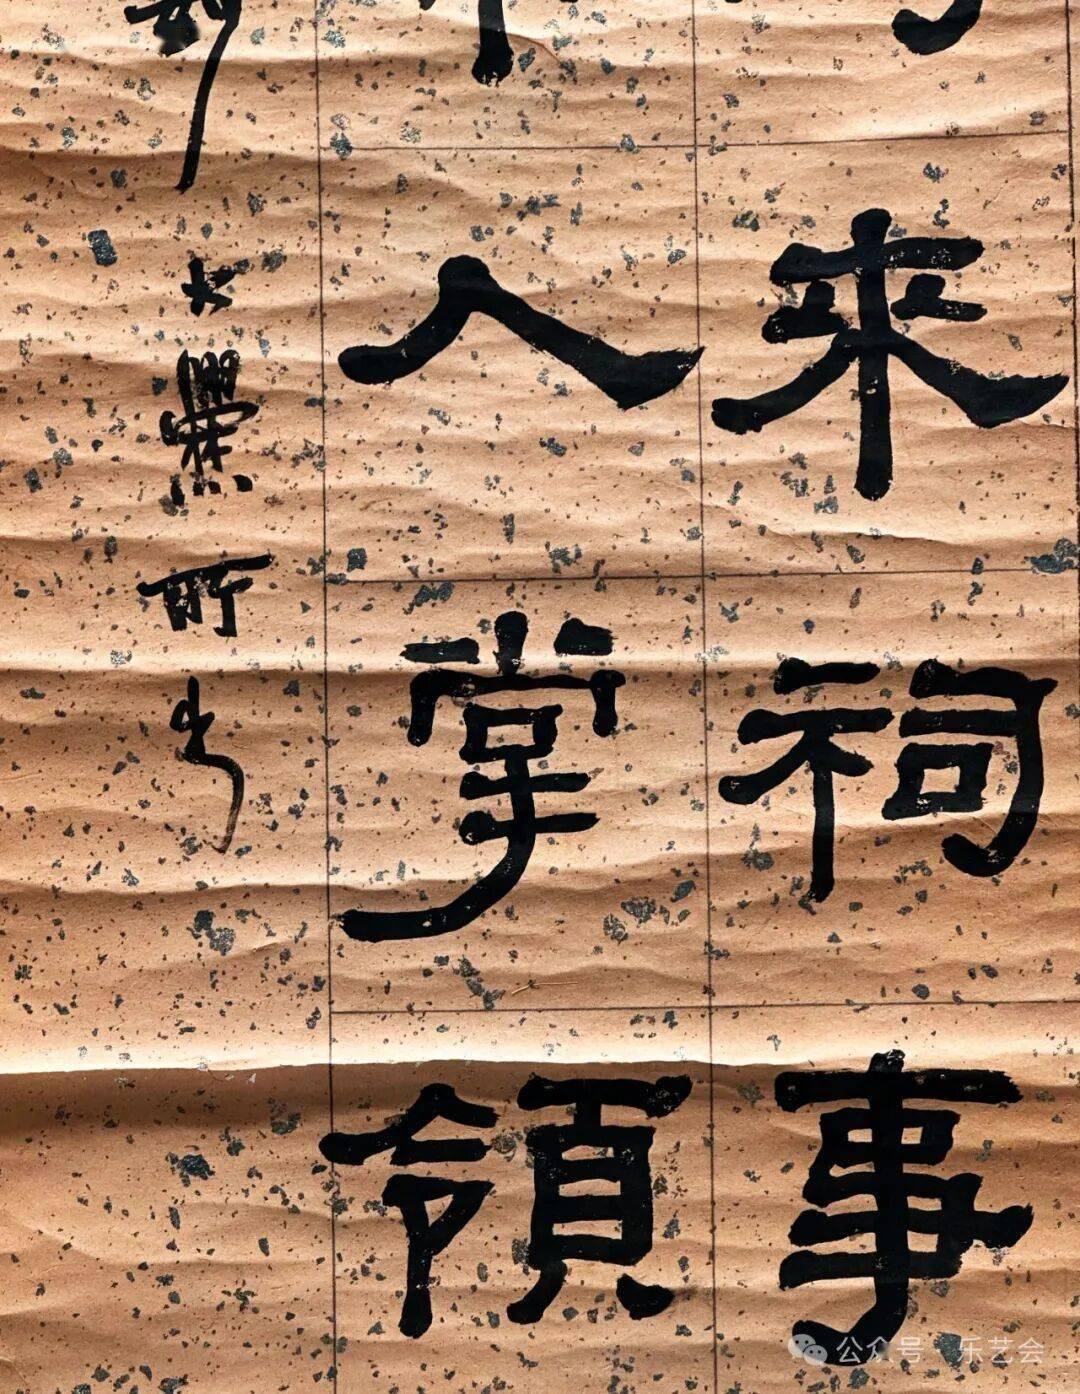 來祠事
人掌領
大爨所书
公众号 · 乐艺会